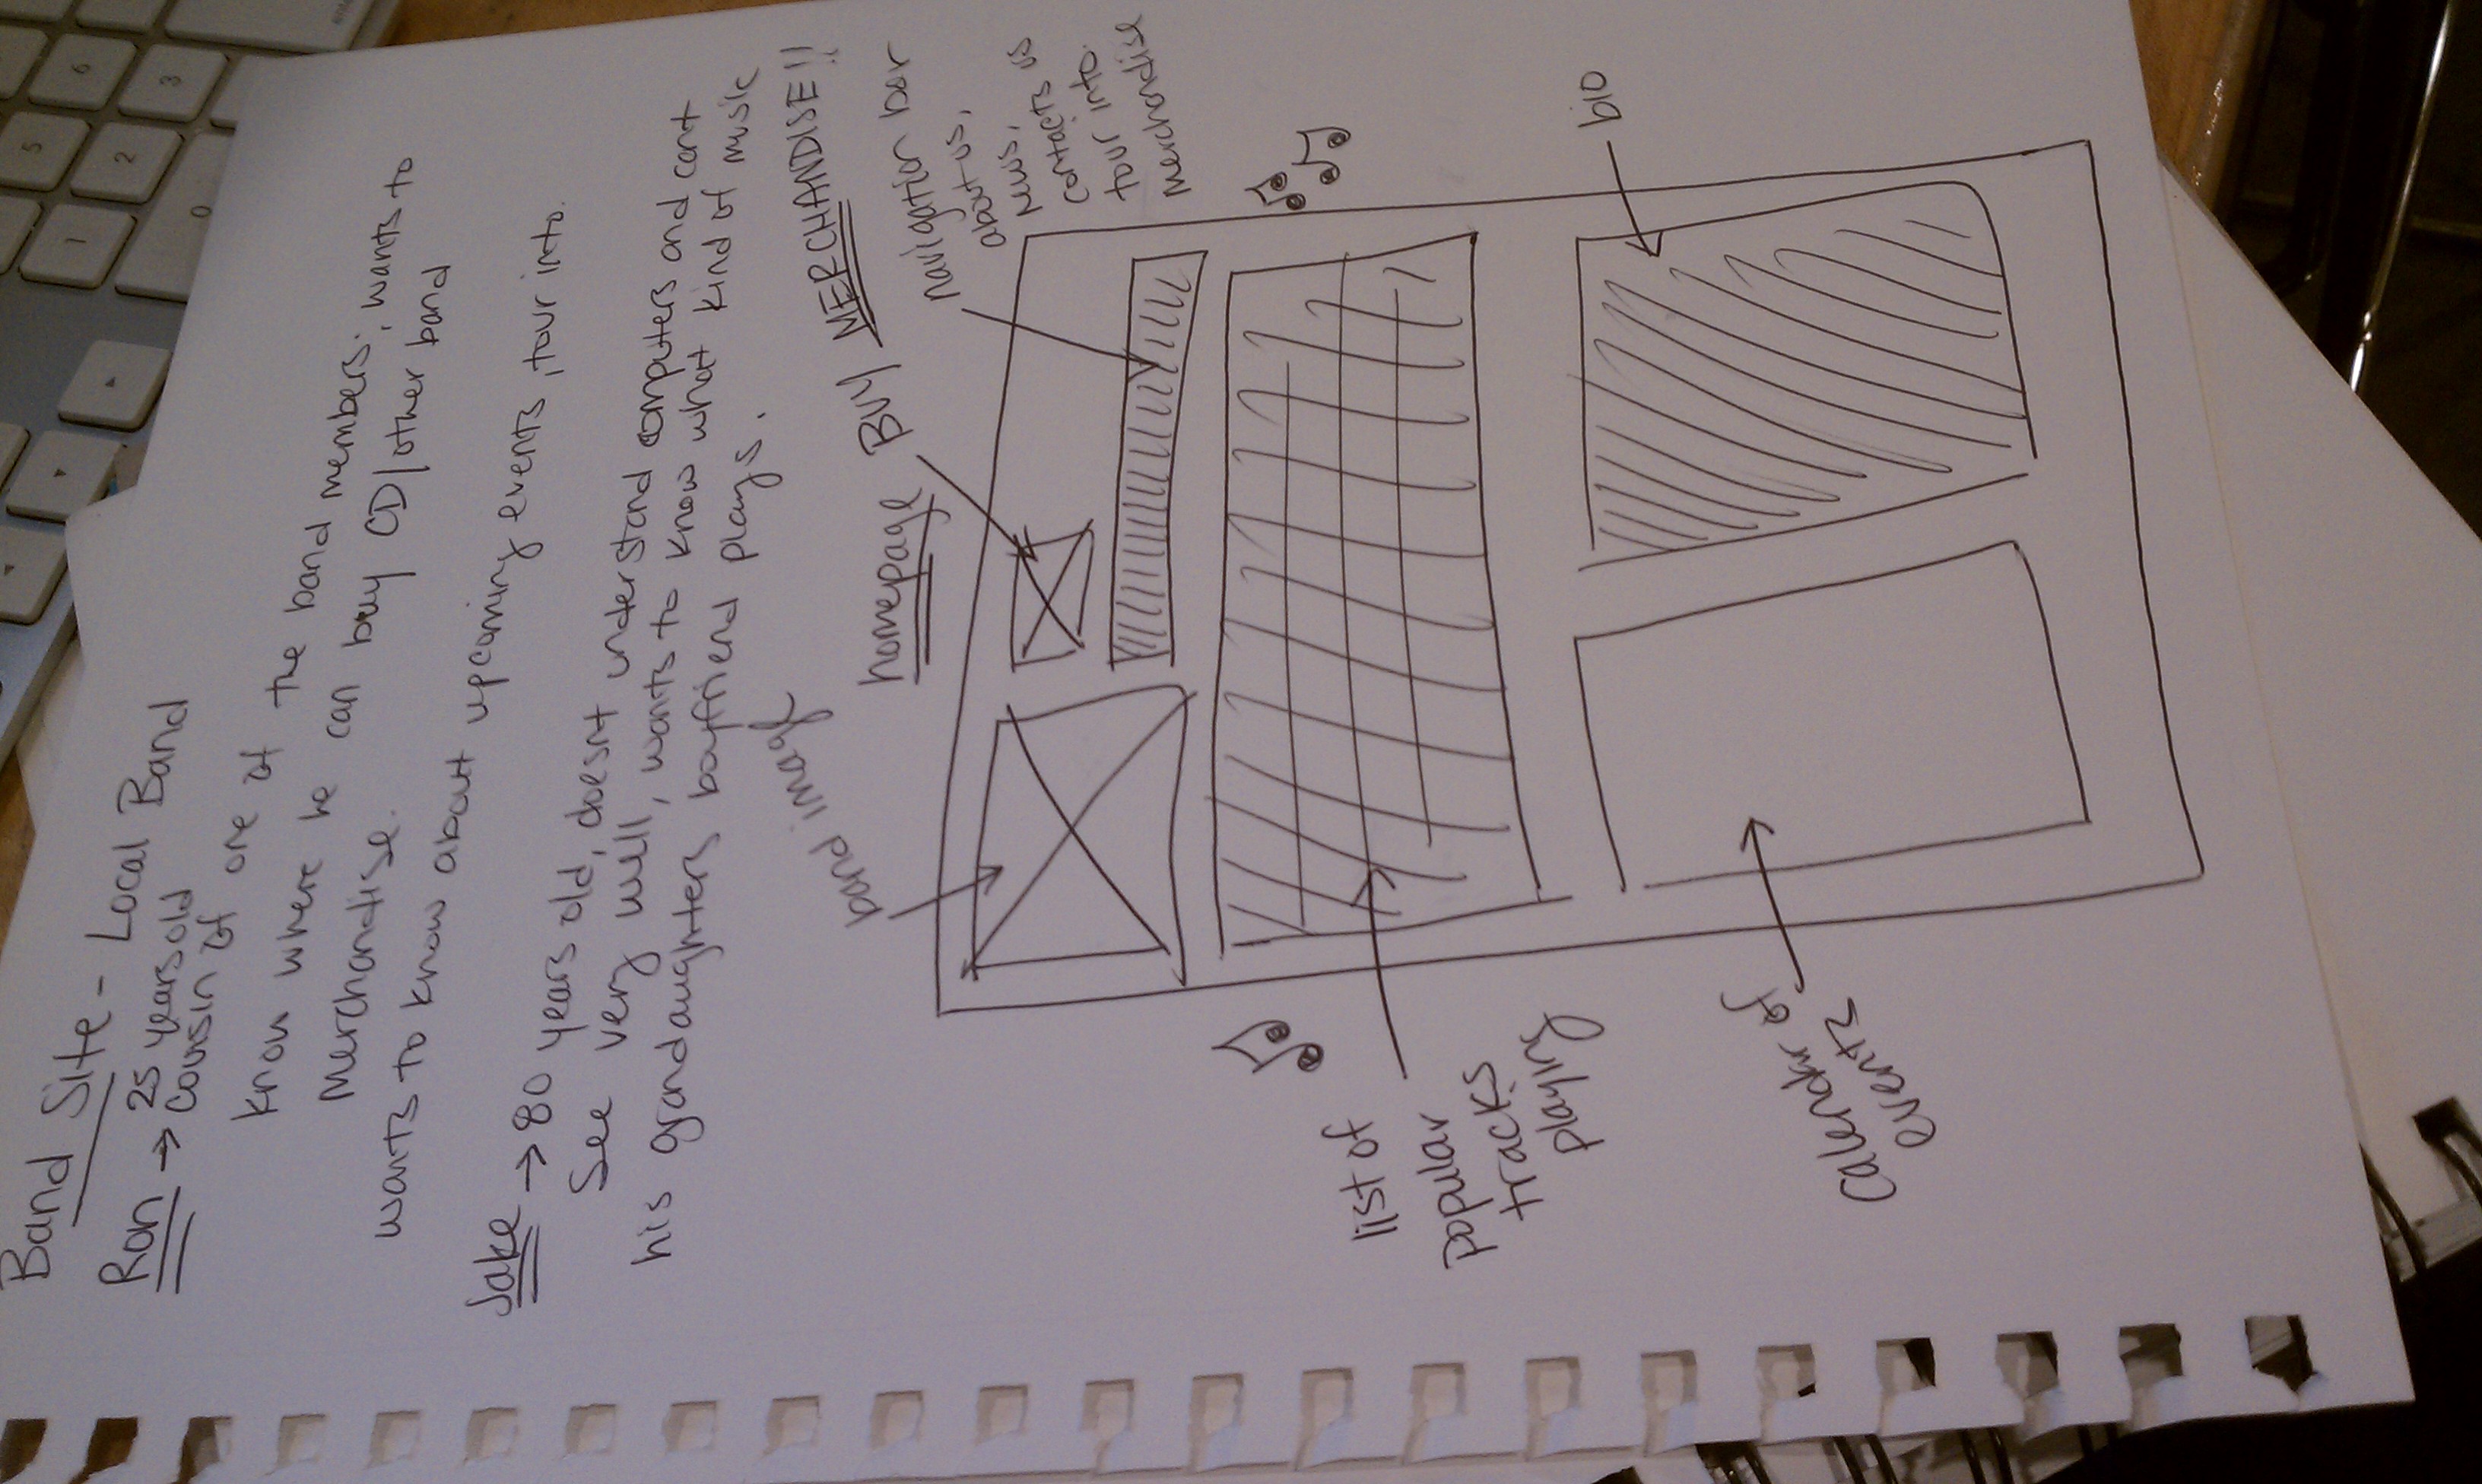 Band Site - Local Band
Ron → 25 years old
Cousin of one of the band members, wants to
know where he can buy CD/other band
merchandise.
wants to know about upcoming events, tour info.
Jake → 80 years old, doesnt understand computers and cant
see very well, wants to know what kind of music
his grandaughters boyfriend plays.
homepage
BUY MERCHANDISE!!
band image
navigation bar
about us,
news,
contacts us
tour info
merchandise
list of
popular
tracks
playing
bio
Calendar of
events
6
3
5
2
1
0